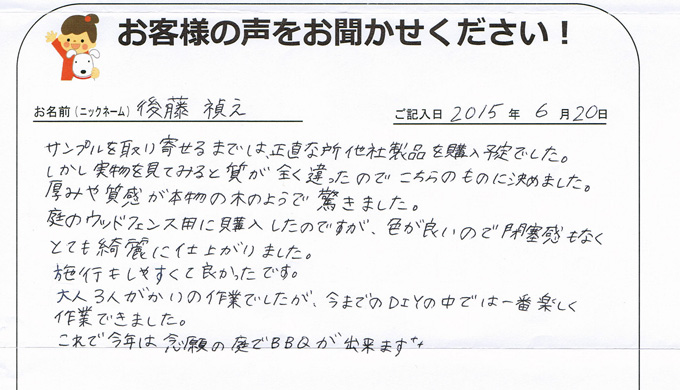 お客様の声をお聞かせください！
お名前（ニックネーム） 後藤 禎え ご記入日 2015 年 6 月 20日
サンプルを取り寄せるまでは、正直な所他社製品を購入予定でした。
しかし実物を見てみると質が全く違ったのでこちらのものに決めました。
厚みや質感が本物の木のようで驚きました。
庭のウッドフェンス用に購入したのですが、色が良いので閉塞感もなく
とても綺麗に仕上がりました。
施行もしやすくて良かったです。
大人3人がかいの作業でしたが、今までのDIYの中では一番楽しく
作業できました。
これで今年は念願の庭でBBQが出来ます++